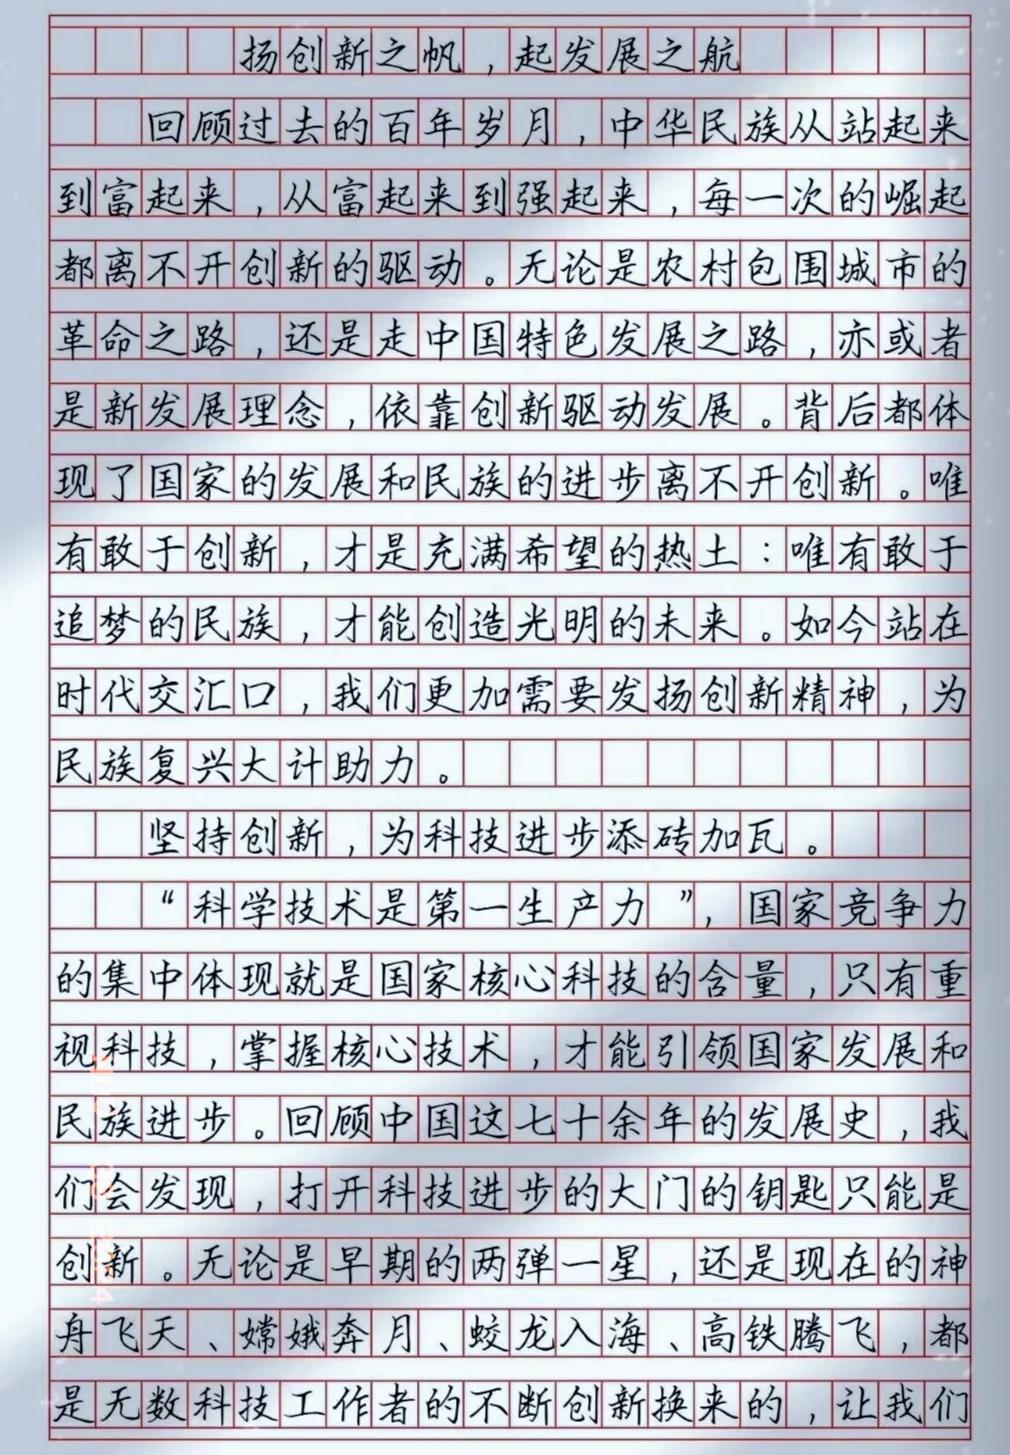 扬创新之帆，起发展之航
回顾过去的百年岁月，中华民族从站起来
到富起来，从富起来到强起来，每一次的崛起
都离不开创新的驱动。无论是农村包围城市的
革命之路，还是走中国特色发展之路，亦或者
是新发展理念，依靠创新驱动发展。背后都体
现了国家的发展和民族的进步离不开创新。唯
有敢于创新，才是充满希望的热土：唯有敢于
追梦的民族，才能创造光明的未来。如今站在
时代交汇口，我们更加需要发扬创新精神，为
民族复兴大计助力。
坚持创新，为科技进步添砖加瓦。
“科学技术是第一生产力”，国家竞争力
的集中体现就是国家核心科技的含量，只有重
视科技，掌握核心技术，才能引领国家发展和
民族进步。回顾中国这七十余年的发展史，我
们会发现，打开科技进步的大门的钥匙只能是
创新。无论是早期的两弹一星，还是现在的神
舟飞天、嫦娥奔月、蛟龙入海、高铁腾飞，都
是无数科技工作者的不断创新换来的，让我们